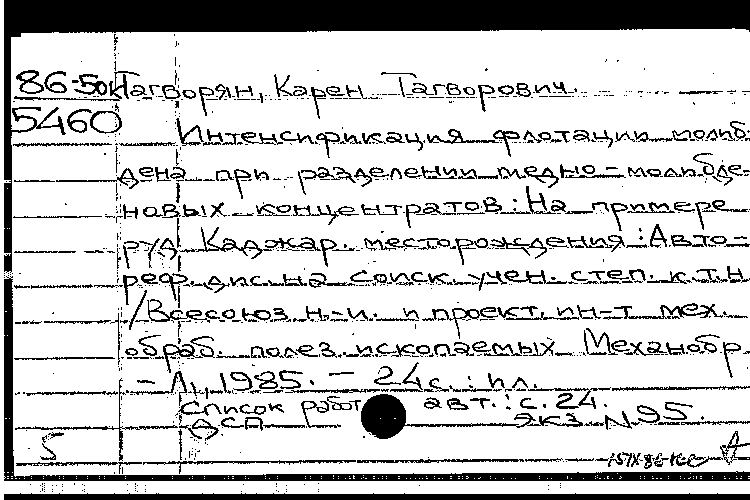 86-50к Тагворян, Карен Тагворович.
5460
Интенсификация флотации молиб-
дена при разделении медно-молибде-
новых концентратов: На примере
руд Каджар. месторождения: Авто-
реф. дис. на соиск. учен. степ. к.т.н
/Всесоюз. н.-и. и проект. ин-т мех.
обраб. полез. ископаемых Механобр.
- Л., 1985. - 24 с.: ил.
Список работ авт.: с. 24.
ДСП экз. N 95.
5